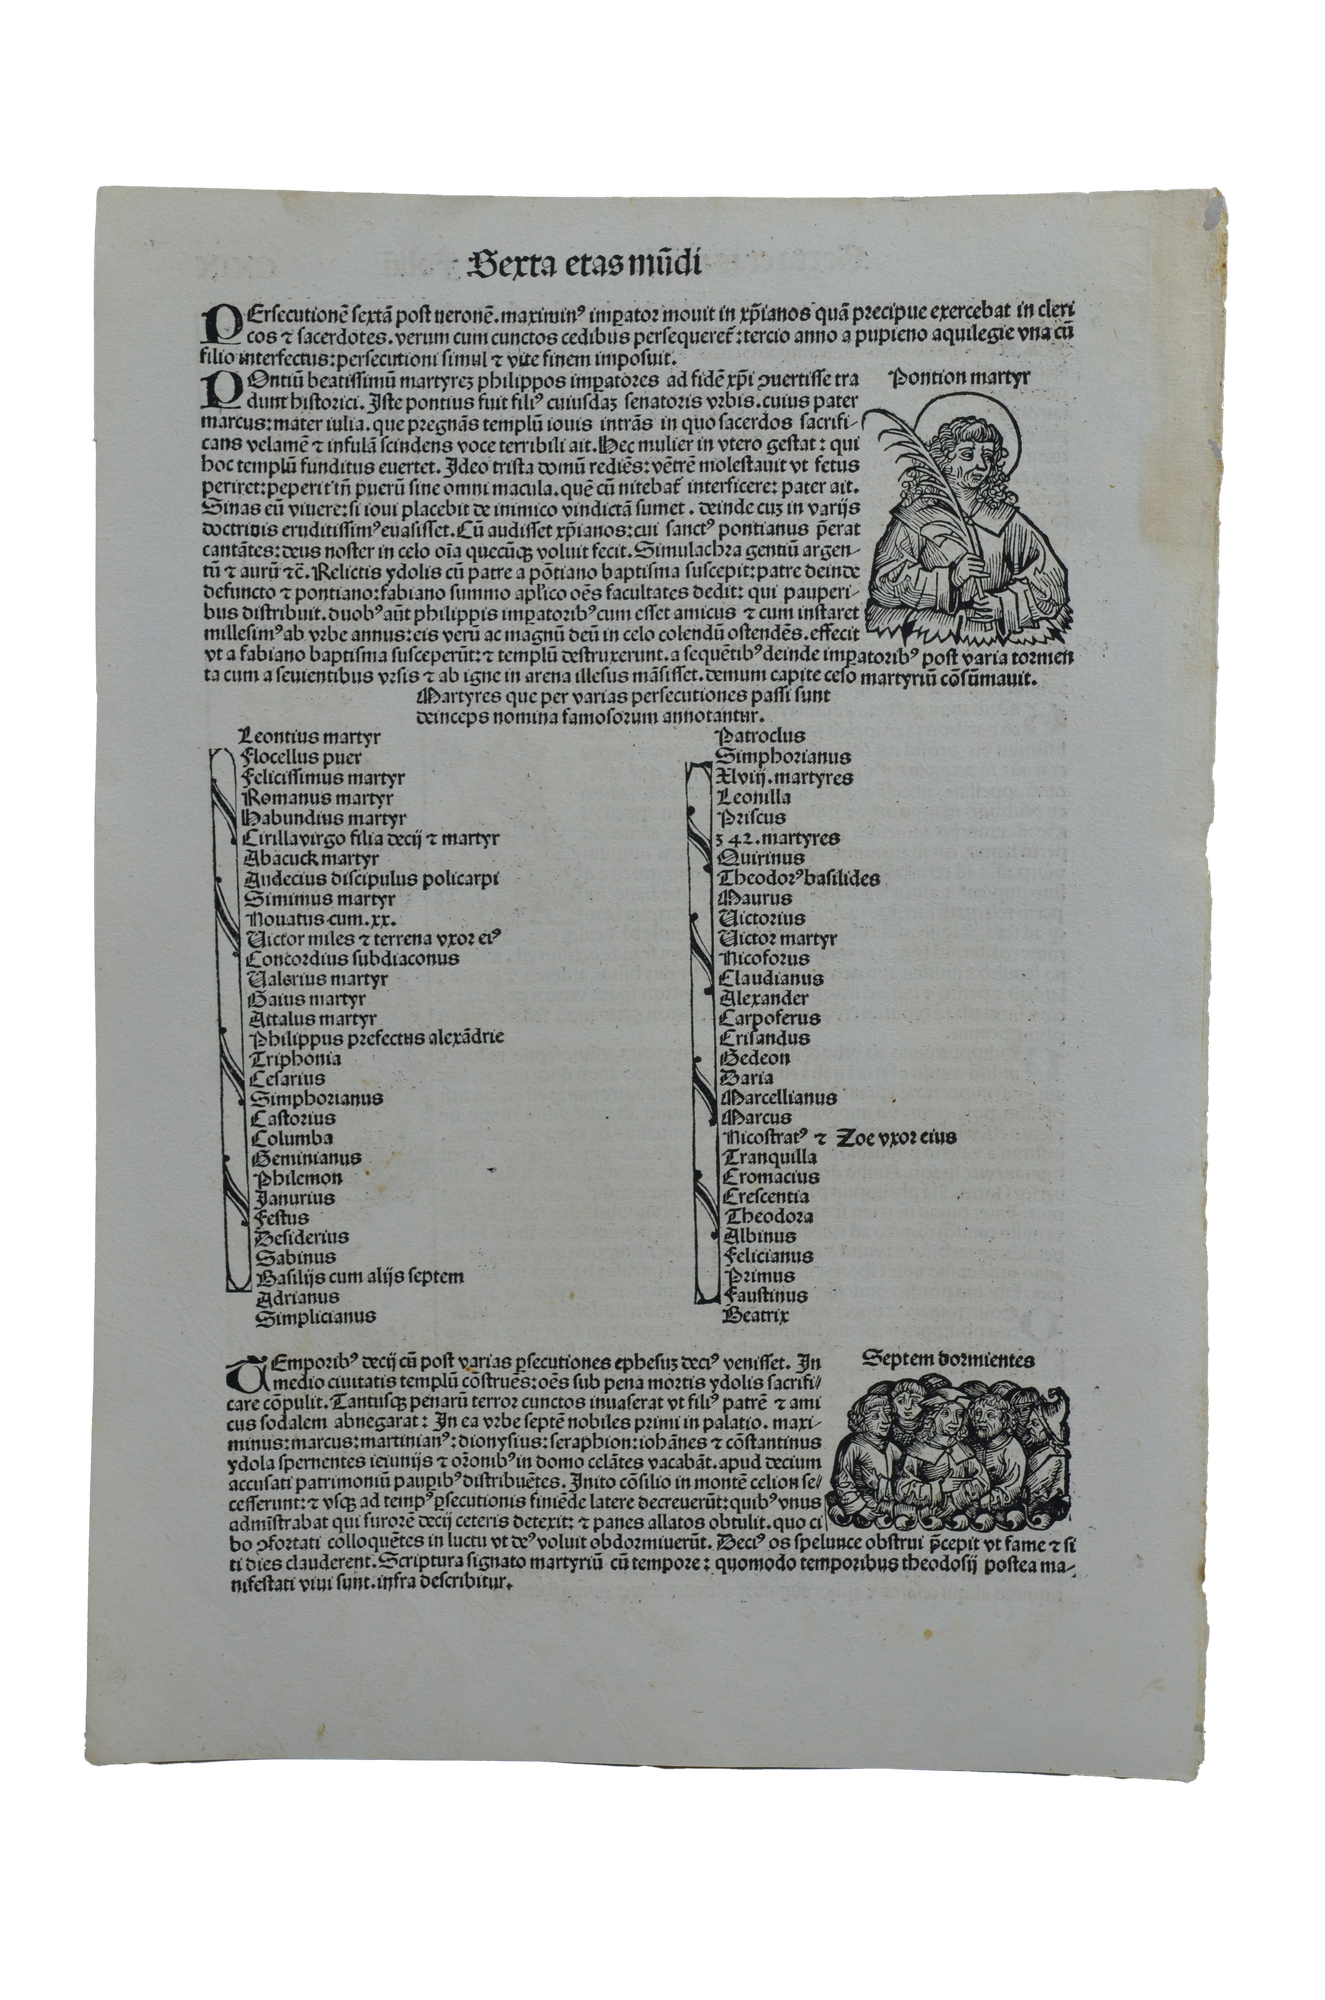 Sexta etas mūdi
PErsecutionē sextā post neronē. maximinꝰ imꝑator mouit in xp̄ianos quā precipue exercebat in cleri
cos ⁊ sacerdotes. verum cum cunctos cedibus persequeret̄: tercio anno a pupieno aquilegie vna cū
filio interfectus: persecutioni simul ⁊ vite finem imposuit.
POntiū beatissimū martyreꝫ philippos imꝑatores ad fidē xp̄i ꝯuertisse tra
dunt historici. Iste pontius fuit filiꝰ cuiusdaꝫ senatoris vrbis. cuius pater
marcus: mater iulia. que p̄gnās templū iouis intrās in quo sacerdos sacrifi-
cans velamē ⁊ infulā scindens voce terribili ait. Hec mulier in vtero gestat: qui
hoc templū funditus euertet. Ideo trista domū rediēs: vētrē molestauit vt fetus
periret: peperit tn̄ puerū sine omni macula. quē cū nitebat̄ interficere: pater ait.
Sinas eū viuere: si ioui placebit de inimico vindictā sumet. deinde cuꝫ in varijs
doctrinis eruditissimꝰ euasisset. Cū audisset xp̄ianos: cui sanctꝰ pontianus p̄erat
cantātes: deus noster in celo oīa quecūqꝫ voluit fecit. Simulachra gentiū argen-
tū ⁊ aurū ⁊c̄. Relictis ydolis cū patre a pōtiano baptisma suscepit: patre deinde
defuncto ⁊ pontiano: fabiano summo apl̓ico oēs facultates dedit: qui pauperi-
bus distribuit. duobꝰ aūt philippis imꝑatoribꝰ cum esset amicus ⁊ cum instaret
millesimꝰ ab vrbe annus: eis verū ac magnū deū in celo colendū ostendēs. effecit
vt a fabiano baptisma susceperūt: ⁊ templū destruxerunt. a sequētibꝰ deinde imꝑatoribꝰ post varia tormen
ta cum a seuientibus vrsis ⁊ ab igne in arena illesus māsisset. demum capite ceso martyriū cōsūmauit.
Pontion martyr
Martyres que per varias persecutiones passi sunt
deinceps nomina famosorum annotantur.
Leontius martyr
Flocellus puer
Felicissimus martyr
Romanus martyr
Habundius martyr
Cirilla virgo filia decij ⁊ martyr
Abācuck martyr
Audecius discipulus policarpi
Simimus martyr
Nouatus cum. xx.
Victor miles ⁊ terrena vxor eiꝰ
Concordius subdiaconus
Valerius martyr
Gaius martyr
Attalus martyr
Philippus prefectus alexādrie
Triphonia
Cesarius
Simphorianus
Castorius
Columba
Geminianus
Philemon
Ianurius
Festus
Desiderius
Sabinus
Basilijs cum alijs septem
Adrianus
Simplicianus
Patroclus
Simphorianus
Xlviij. martyres
Leonilla
Priscus
342. martyres
Quirinus
Theodorꝰ basilides
Maurus
Victorius
Victor martyr
Nicoforus
Claudianus
Alexander
Carpoferus
Crisandus
Gedeon
Daria
Marcellianus
Marcus
Nicostratꝰ ⁊ Zoe vxor eius
Tranquilla
Cromacius
Crescentia
Theodora
Albinus
Felicianus
Primus
Faustinus
Beatrix
TEmporibꝰ decij cū post varias ꝑsecutiones ephesuꝫ deciꝰ venisset. In
medio ciuitatis templū cōstruēs: oēs sub pena mortis ydolis sacrifi/
care cōpulit. Tantusqꝫ penarū terror cunctos inuaserat vt filiꝰ patrē ⁊ ami
cus sodalem abnegarat: In ea vrbe septē nobiles primi in palatio. maxi-
minus: marcus: martinianꝰ: dionysius: seraphion: iohānes ⁊ cōstantinus
ydola spernentes ieiunijs ⁊ or̄onibꝰ in domo celātes vacabāt. apud decium
accusati patrimoniū pauꝑibꝰ distribuētes. Inito cōsilio in montē celion se/
cesserunt: ⁊ vsqꝫ ad tempꝰ ꝑsecutionis finiēde latere decreuerūt: quibꝰ vnus
admīstrabat qui furorē decij ceteris detexit: ⁊ panes allatos obtulit. quo ci
bo ꝯfortati colloquētes in luctu vt deꝰ voluit obdormiuerūt. Deciꝰ os spelunce obstrui p̄cepit vt fame ⁊ si
ti dies clauderent. Scriptura signato martyriū cū tempore: quomodo temporibus theodosij postea ma-
nifestati viui sunt. infra describitur.
Septem dormientes